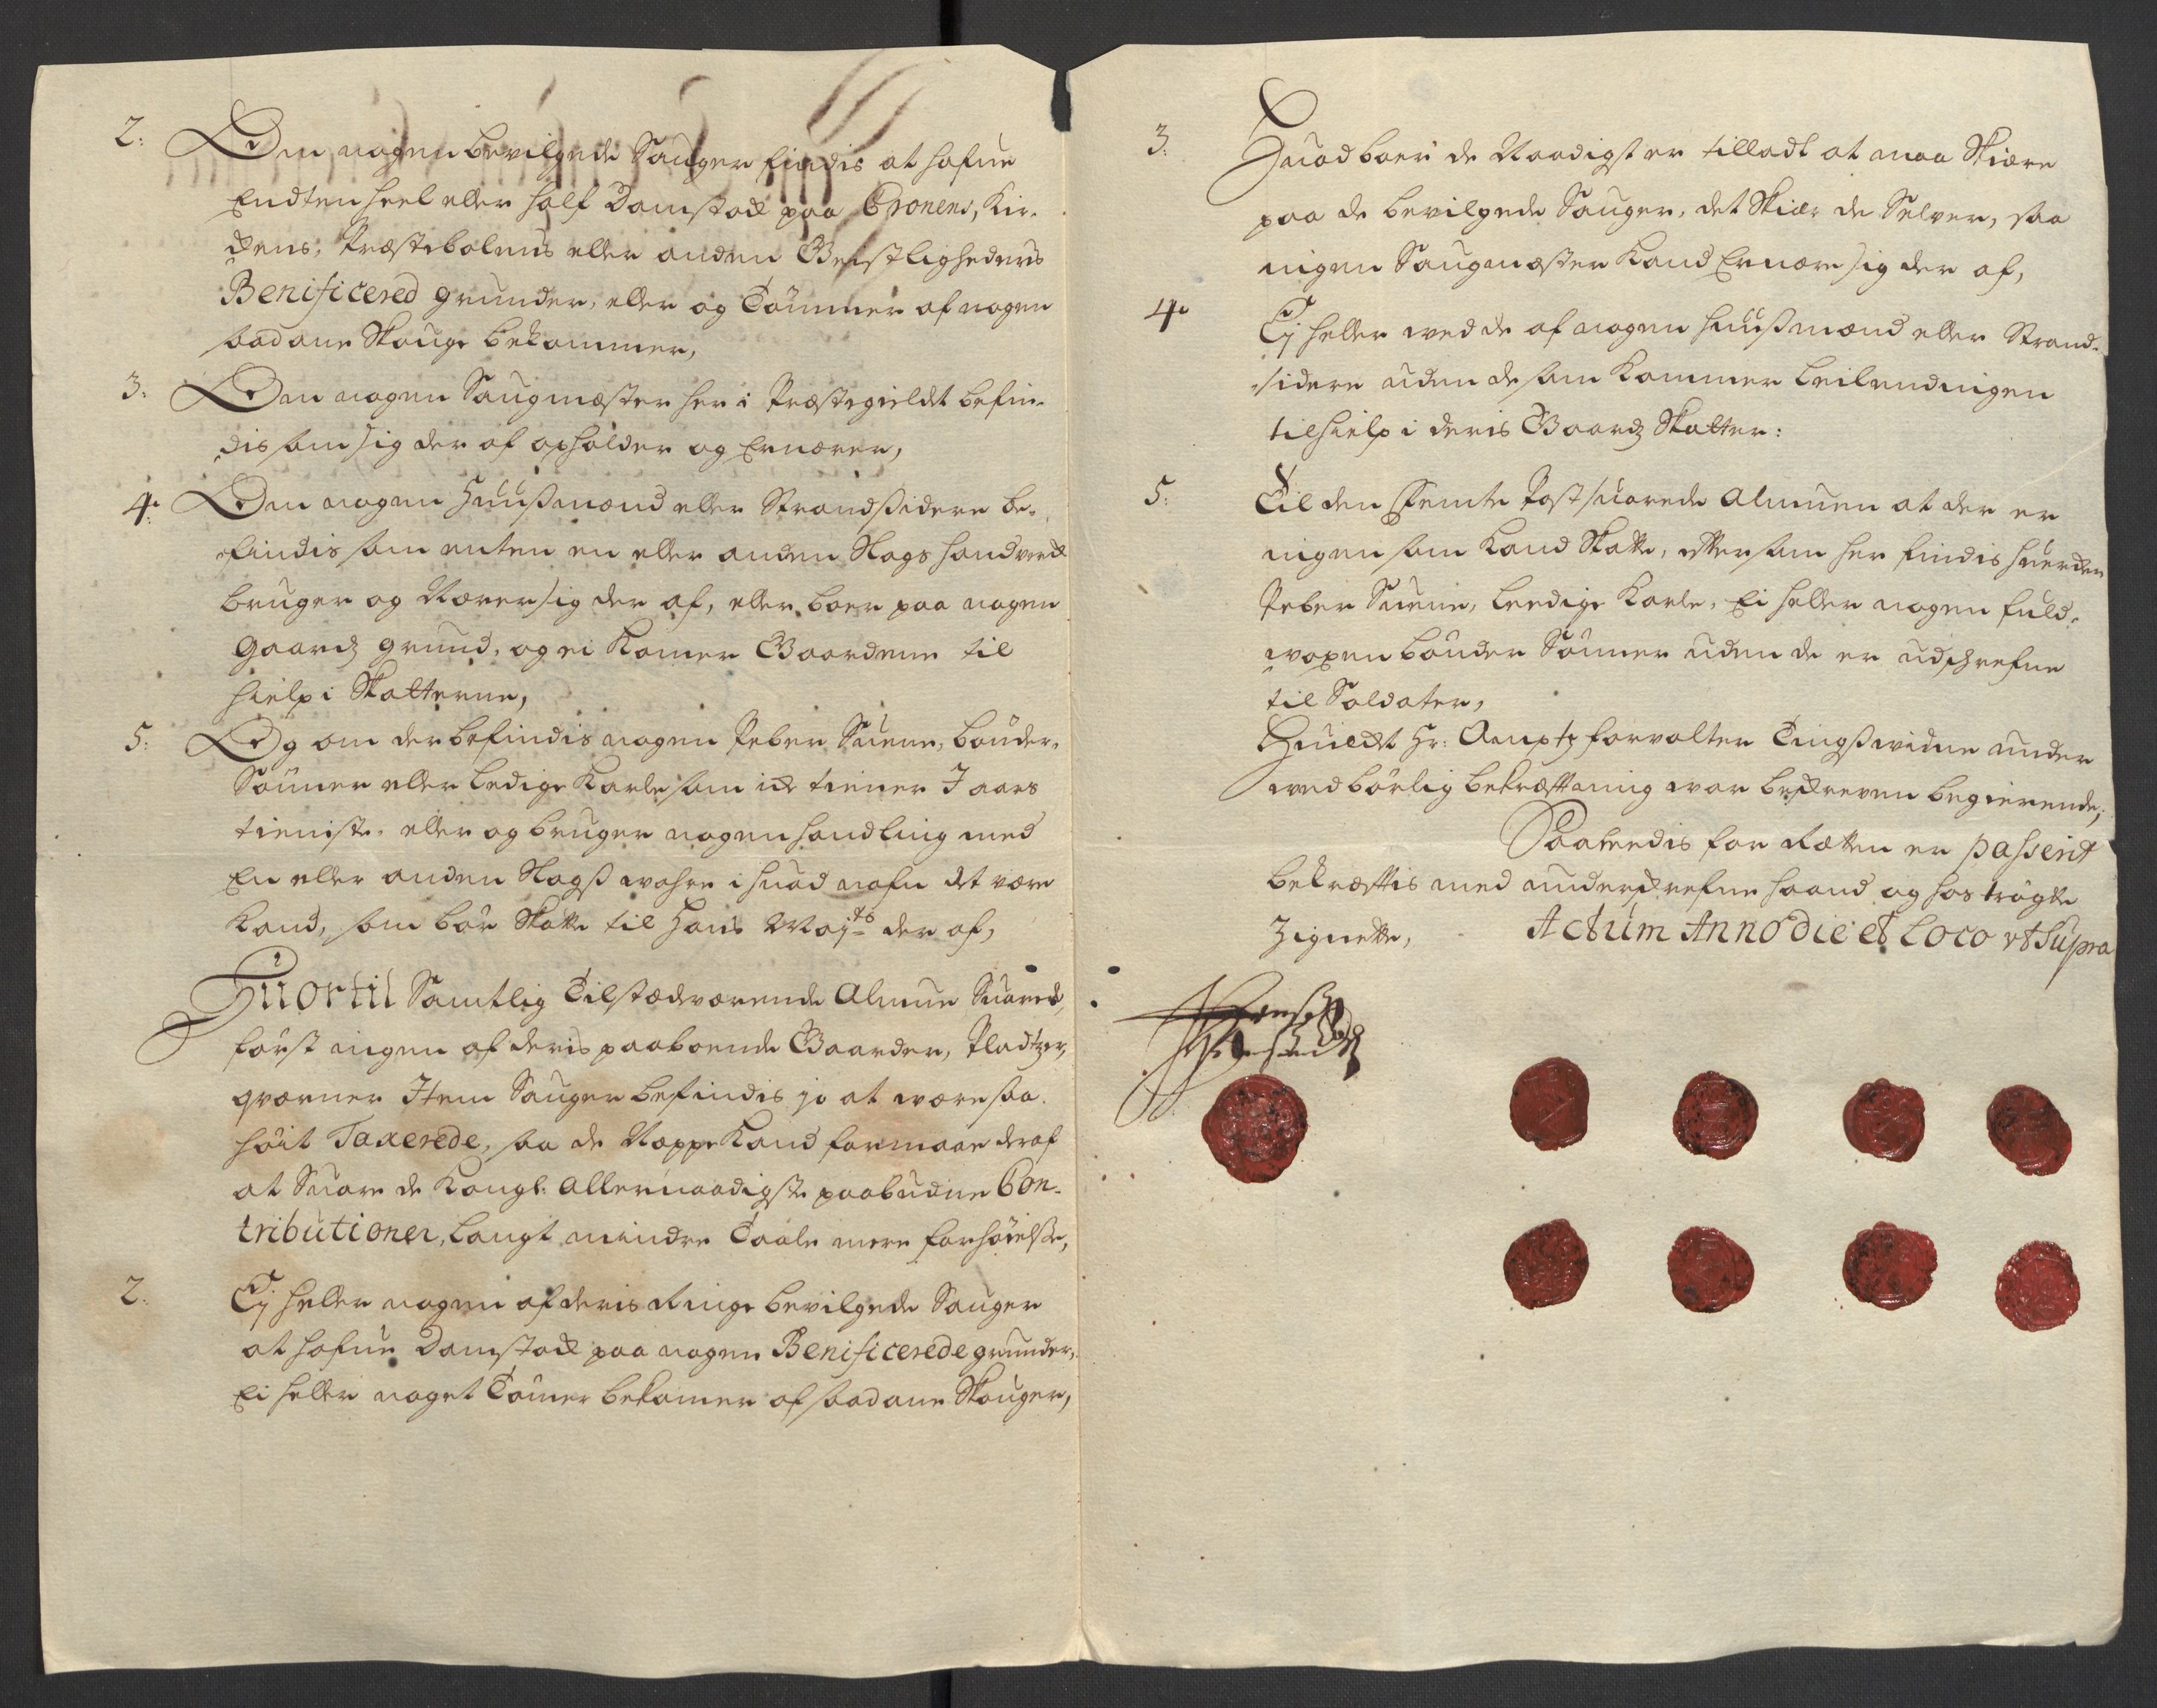 2: Om nogen bevilgede Sauger findis at hafue
Endten heel eller half Damstock paa Cronens, Kir-
ckens, Præstebolens eller anden Geistlighedens
Benificered grunder, eller og Tømmer af nogen
saadane Skouge bekommer,
3: Om nogen Saugmester her i Præstegieldet befin-
dis som sig der af opholder og Ernærer,
4. Om nogen Huusmænd eller Strandsidere be-
findis som enten en eller anden Slags handverck
bruger og Nærer sig der af, eller boer paa nogen
Gaards grund, og ei Komer Gaardene til
hielp i Skatterne,
5: Og om der befindis nogen Peber Suene, bønder-
Sønner eller Ledige Karle som ick tiener I aars
tieniste, eller og bruger nogen handling med
En eller anden Slags wahre i huad nafn det være
Kand, som bør Skatte til Hans Maj:ts der af,
Huortil Samtlig Tilstædværende Almue Suarede,
først ingen af deris paaboende Gaarder, Pladtzer,
qværner Item Sauger befindis jo at være saa
høit Taxerede, saa de Neppe Kand formaae deraf
at Suare de Kongl: Allernaadigste paabudne Con-
tributioner, langt mindre Taale mere forhøielse,
2. Ej heller nogen af deris Ringe bevilgede Sauger
at hafue Damstock paa nogen Benificerede grunder,
Ei heller noget Tømer bekomer af saadane Skouger,
3. Huad boer de Naadigst er tilladt at maa Skiære
paa de bevilgede Sauger, det Skiær de Selver, saa
ingen Saugmester Kand Ernære sig der af,
4. Ej heller ved de af nogen Huusmænd eller Strand-
sidere uden de som Kommer Leilendingen
til hielp i deris Gaards Skatter:
5: Til den Femte Post suarede Almuen at der er
ingen som Kand Skatte, eftersom her findis huerken
Peber Suene, Leedige Karle, Ei heller nogen fuld-
voxen bønder Sønner uden de er udschrefne
til Soldater,
Huilcket Hr: Amptz forvalter Tingswidne under
wedbørlig bekræfftning war beskreven begierende,
Saaleedis for Rætten er passerit
bekræfftis med underschrefne haand og hos trøgte
Zignette, Actum Anno die et Loco vt Supra